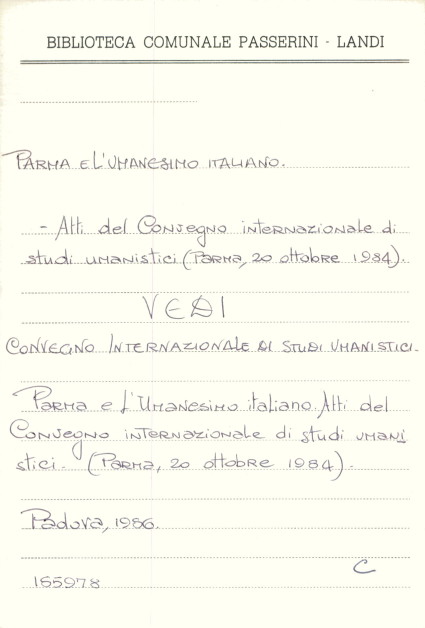 BIBLIOTECA COMUNALE PASSERINI - LANDI
PARMA E L'UMANESIMO ITALIANO.
- Atti del Convegno internazionale di
studi umanistici (Parma, 20 ottobre 1984).
VEDI
CONVEGNO INTERNAZIONALE DI STUDI UMANISTICI.
Parma e l'Umanesimo italiano. Atti del
Convegno internazionale di studi umani
stici. (Parma, 20 ottobre 1984).
Padova, 1986.
C
165978